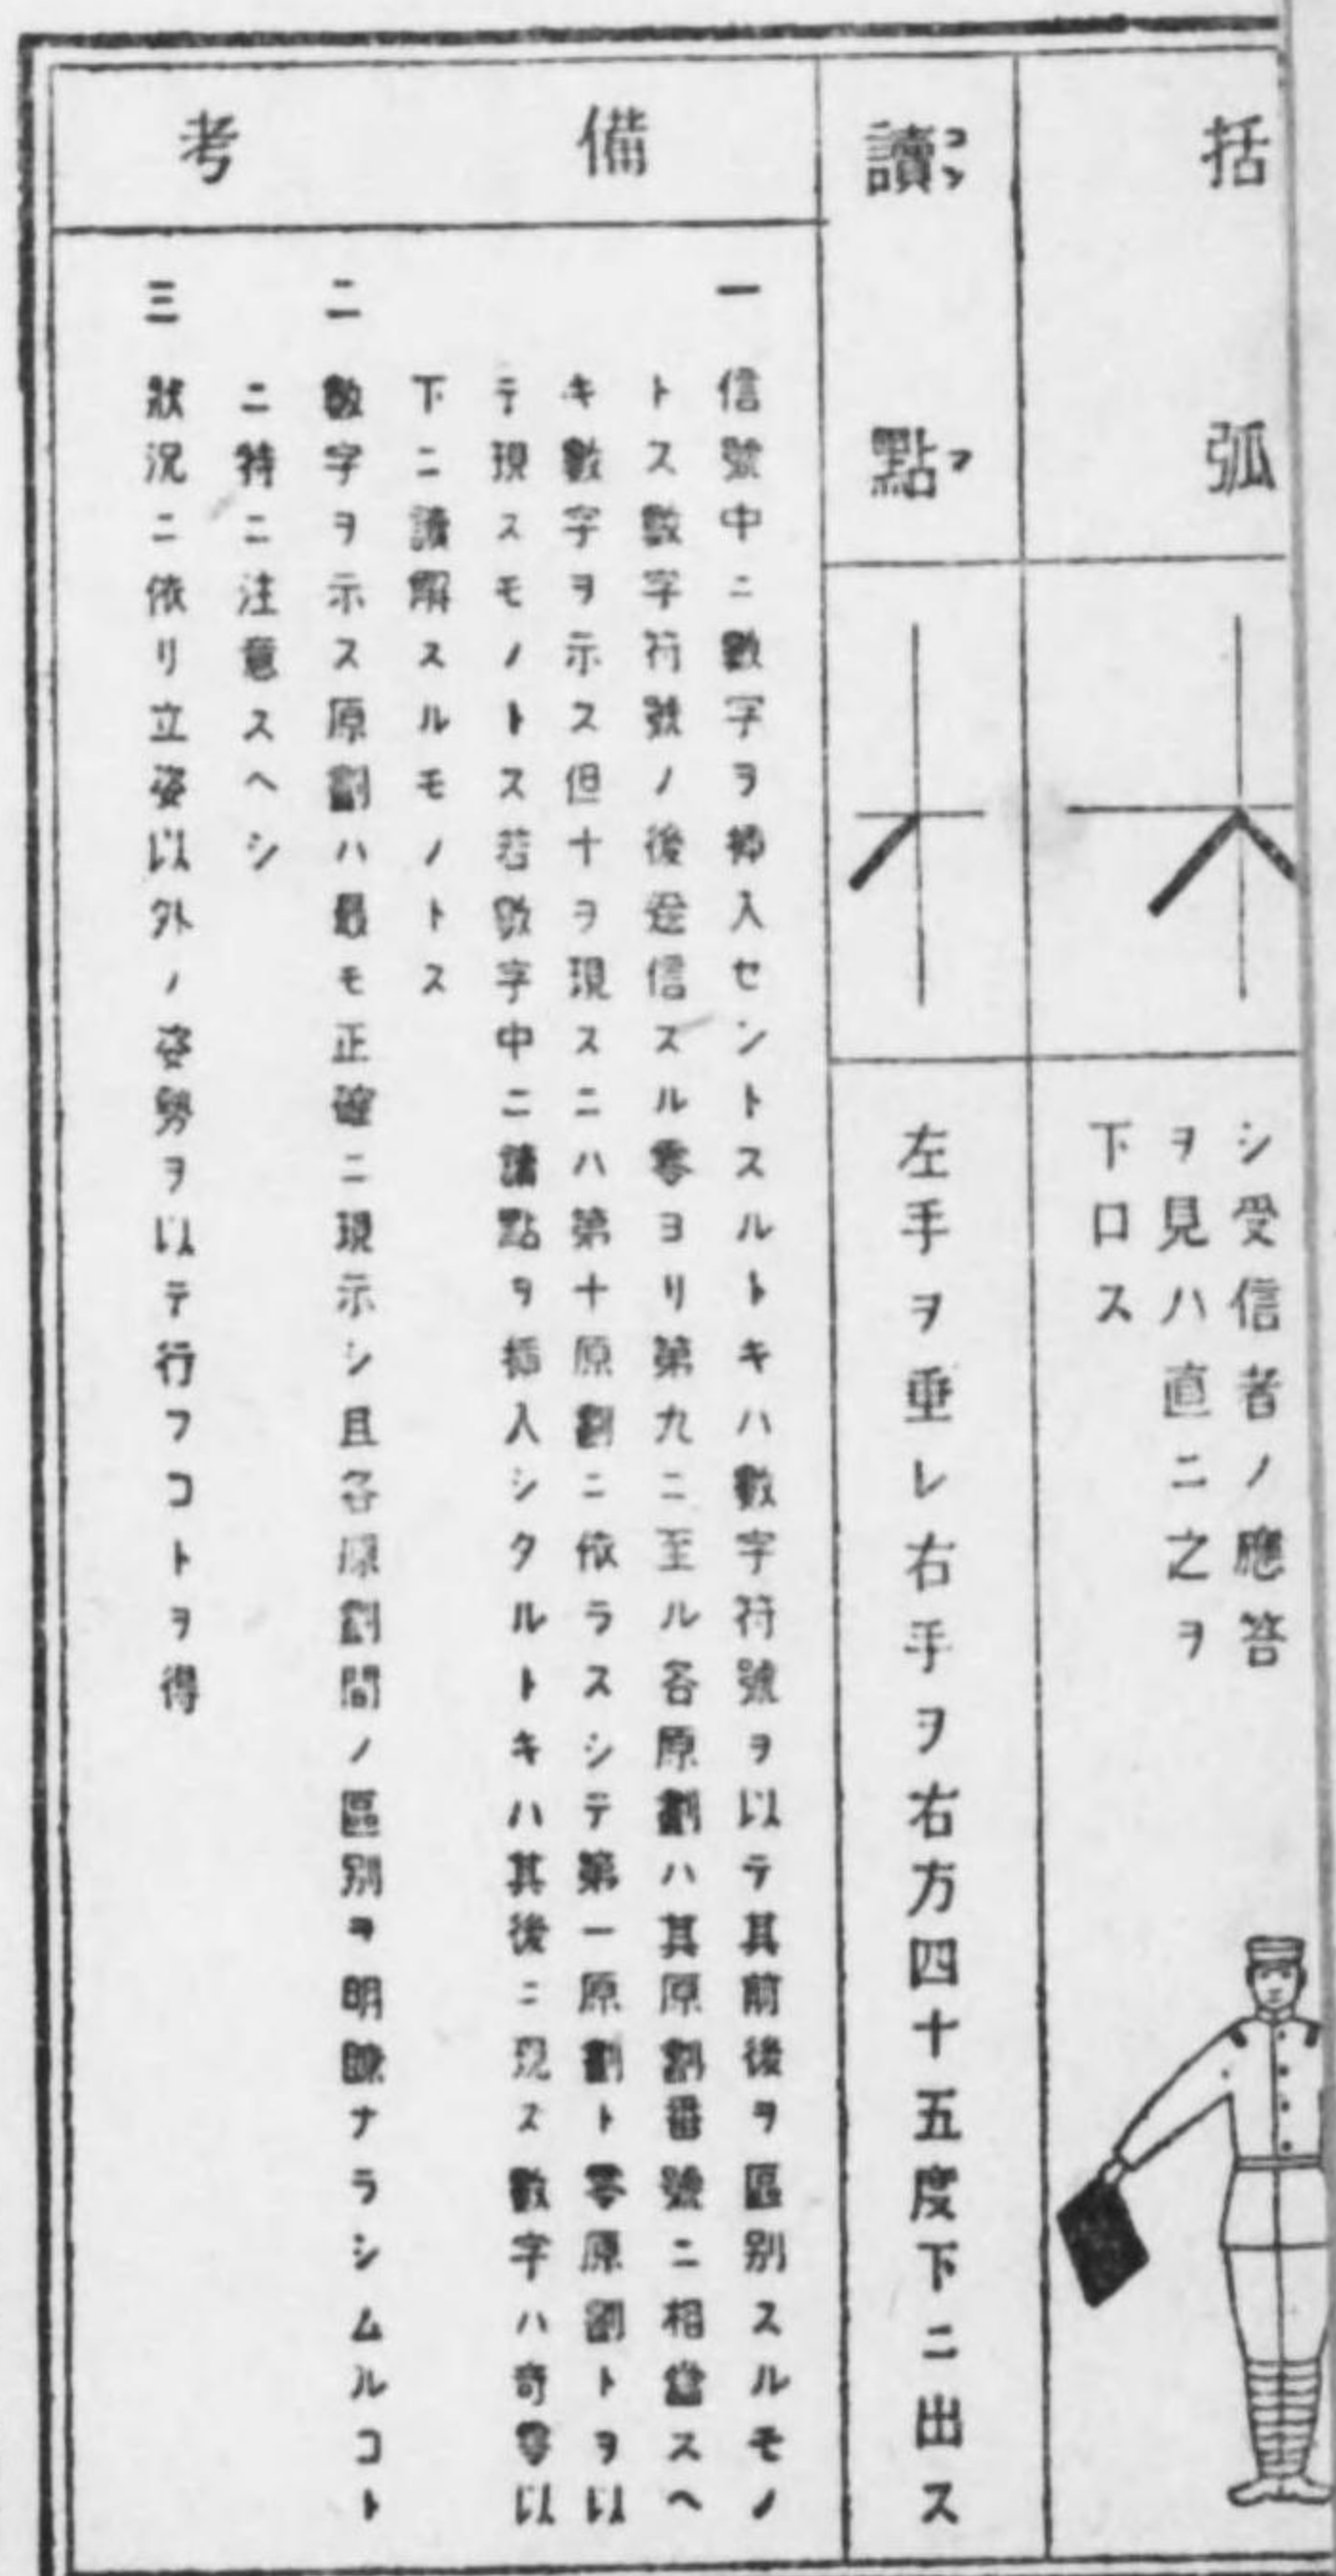 括弧
シ受信者ノ應答
ヲ見ハ直ニ之ヲ
下ロス
讀點
コン
マ
左手ヲ垂レ右手ヲ右方四十五度下ニ出ス
備考
一 信號中ニ數字ヲ挿入セントスルトキハ數字符號ヲ以テ其前後ヲ區別スルモノ
トス數字符號ノ後發信スル零ヨリ第九ニ至ル各原劃ハ其原劃番號ニ相當スヘ
キ數字ヲ示ス但十ヲ現スニハ第十原劃ニ依ラスシテ第一原劃ト零原劃トヲ以
テ現スモノトス若數字中ニ讀點ヲ插入シタルトキハ其後ニ現ス數字ハ奇零以
下ニ讀解スルモノトス
二 數字ヲ示ス原劃ハ最モ正確ニ現示シ且各原劃間ノ區別ヲ明瞭ナラシムルコト
ニ特ニ注意スヘシ
三 狀況ニ依リ立姿以外ノ姿勢ヲ以テ行フコトヲ得